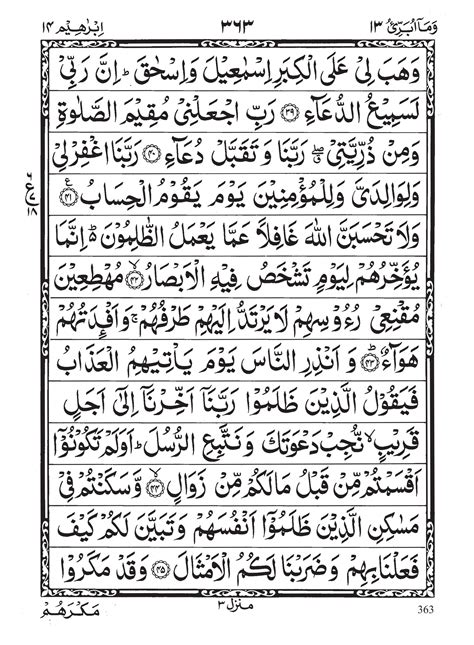 وَمَآ اُبَرِّئُ ١٣ ٣٦٣ اِبْرٰهِيْم ١٤
وَهَبَ لِيْ عَلَى الْكِبَرِ اِسْمٰعِيْلَ وَاِسْحٰقَ ؕ اِنَّ رَبِّيْ
لَسَمِيْعُ الدُّعَآءِ ۝٣٩ رَبِّ اجْعَلْنِيْ مُقِيْمَ الصَّلٰوةِ
وَمِنْ ذُرِّيَّتِيْ ۖ رَبَّنَا وَتَقَبَّلْ دُعَآءِ ۝٤٠ رَبَّنَا اغْفِرْ لِيْ
وَلِوَالِدَيَّ وَلِلْمُؤْمِنِيْنَ يَوْمَ يَقُوْمُ الْحِسَابُ ۝٤١ ع
٦ ع ٧ ١٨
وَلَا تَحْسَبَنَّ اللّٰهَ غَافِلًا عَمَّا يَعْمَلُ الظّٰلِمُوْنَ ؕ۬ اِنَّمَا
يُؤَخِّرُهُمْ لِيَوْمٍ تَشْخَصُ فِيْهِ الْاَبْصَارُ ۝٤٢ۙ مُهْطِعِيْنَ
مُقْنِعِيْ رُءُوْسِهِمْ لَا يَرْتَدُّ اِلَيْهِمْ طَرْفُهُمْ ۚ وَاَفْـِٕدَتُهُمْ
هَوَآءٌ ۝٤٣ؕ وَاَنْذِرِ النَّاسَ يَوْمَ يَاْتِيْهِمُ الْعَذَابُ
فَيَقُوْلُ الَّذِيْنَ ظَلَمُوْا رَبَّنَآ اَخِّرْنَآ اِلٰٓى اَجَلٍ
قَرِيْبٍ ۙ نُّجِبْ دَعْوَتَكَ وَنَتَّبِعِ الرُّسُلَ ؕ اَوَلَمْ تَكُوْنُوْٓا
اَقْسَمْتُمْ مِّنْ قَبْلُ مَا لَكُمْ مِّنْ زَوَالٍ ۝٤٤ۙ وَّسَكَنْتُمْ فِيْ
مَسٰكِنِ الَّذِيْنَ ظَلَمُوْٓا اَنْفُسَهُمْ وَتَبَيَّنَ لَكُمْ كَيْفَ
فَعَلْنَا بِهِمْ وَضَرَبْنَا لَكُمُ الْاَمْثَالَ ۝٤٥ وَقَدْ مَكَرُوْا
مَكْرَهُمْ منزل ٣ 363